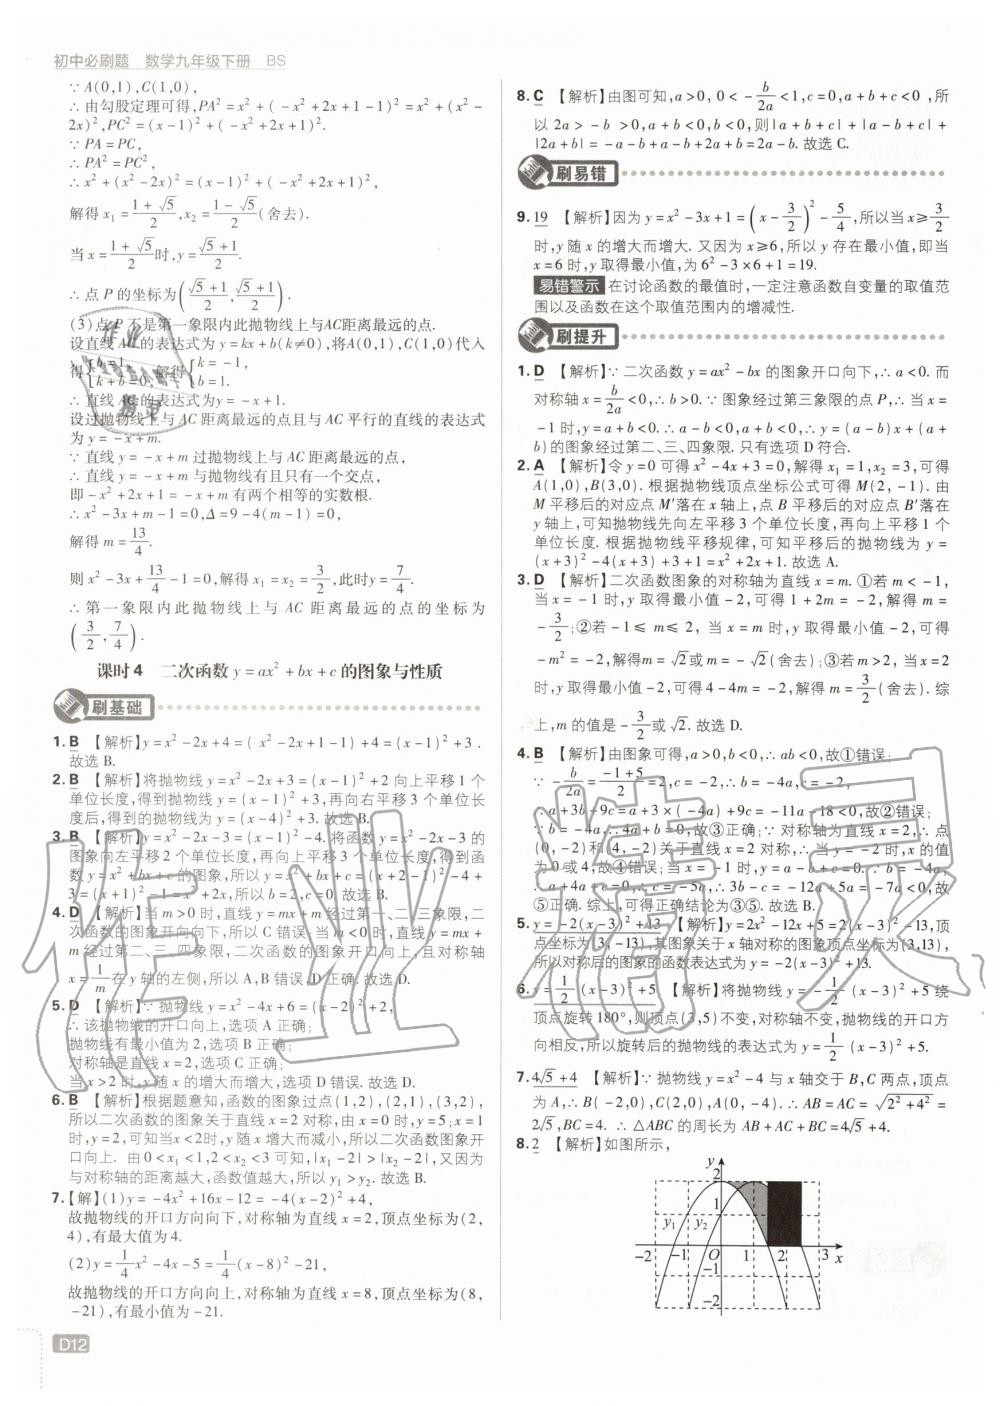 初中必刷题 数学九年级下册 BS
∵A(0,1),C(1,0),
∴由勾股定理可得,PA²=x²+(-x²+2x+1-1)²=x²+(x²-
2x)²,PC²=(x-1)²+(-x²+2x+1)².
∵PA=PC,
∴PA²=PC²,
∴x²+(x²-2x)²=(x-1)²+(-x²+2x+1)²,
解得x₁=(1+√5)/2,x₂=(1-√5)/2(舍去).
当x=(1+√5)/2时,y=(√5+1)/2.
∴点P的坐标为((√5+1)/2,(√5+1)/2).
(3)点P不是第一象限内此抛物线上与AC距离最远的点.
设直线AC的表达式为y=kx+b(k≠0),将A(0,1),C(1,0)代入
得{b=1, k+b=0, 解得{k=-1, b=1.
∴直线AC的表达式为y=-x+1.
设过抛物线上与AC距离最远的点且与AC平行的直线的表达式
为y=-x+m.
∵直线y=-x+m过抛物线上与AC距离最远的点,
∴直线y=-x+m与抛物线有且只有一个交点,
即-x²+2x+1=-x+m有两个相等的实数根.
∴x²-3x+m-1=0,Δ=9-4(m-1)=0,
解得m=13/4.
则x²-3x+13/4-1=0,解得x₁=x₂=3/2,此时y=7/4.
∴第一象限内此抛物线上与AC距离最远的点的坐标为
(3/2,7/4).
课时4 二次函数y=ax²+bx+c的图象与性质
刷基础
1.B 【解析】y=x²-2x+4=(x²-2x+1-1)+4=(x-1)²+3.
故选B.
2.B 【解析】将抛物线y=x²-2x+3=(x-1)²+2向上平移1个
单位长度,得到抛物线y=(x-1)²+3,再向右平移3个单位长
度后,得到的抛物线为y=(x-4)²+3.故选B.
3.B 【解析】y=x²-2x-3=(x-1)²-4.将函数y=x²-2x-3的
图象向左平移2个单位长度,再向上平移3个单位长度,得到函
数y=x²+bx+c的图象,所以y=x²+bx+c=(x+2-1)²-4+
3=(x+1)²-1=x²+2x,所以b=2,c=0.故选B.
4.D 【解析】当m>0时,直线y=mx+m经过第一、二、三象限,二
次函数的图象开向向下,所以C错误.当m<0时,直线y=mx+
m经过第二、三、四象限,二次函数的图象开口向上,且对称轴
x=1/m在y轴的左侧,所以A,B错误,D正确.故选D.
5.D 【解析】∵抛物线y=x²-4x+6=(x-2)²+2,
∴该抛物线的开口向上,选项A正确;
抛物线有最小值为2,选项B正确;
对称轴是直线x=2,选项C正确;
当x>2时,y随x的增大而增大,选项D错误.故选D.
6.B 【解析】根据题意知,函数的图象过点(1,2),(2,1),(3,2),
所以二次函数的图象关于直线x=2对称,由x=0时,y=5;x=1
时,y=2,可知当x<2时,y随x增大而减小,所以二次函数图象开
口向上.由0<x₁<1,2<x₂<3可知,|x₁-2|>|x₂-2|,又因为
与对称轴的距离越大,函数值越大,所以y₁>y₂.故选B.
7.【解】(1)y=-4x²+16x-12=-4(x-2)²+4,
故抛物线的开口方向向下,对称轴为直线x=2,顶点坐标为(2,
4),有最大值为4.
(2)y=1/4x²-4x-5=1/4(x-8)²-21,
故抛物线的开口方向向上,对称轴为直线x=8,顶点坐标为(8,
-21),有最小值为-21.
D12
8.C 【解析】由图可知,a>0,0<-b/2a<1,c=0,a+b+c<0,所
以2a>-b>0,a+b<0,b<0,则|a+b+c|+|a-b+c|+
|2a+b|=-a-b+a-b+2a+b=2a-b.故选C.
刷易错
9.19 【解析】因为y=x²-3x+1=(x-3/2)²-5/4,所以当x≥3/2
时,y随x的增大而增大.又因为x≥6,所以y存在最小值,即当
x=6时,y取得最小值,为6²-3×6+1=19.
易错警示 在讨论函数的最值时,一定注意函数自变量的取值范
围以及函数在这个取值范围内的增减性.
刷提升
1.D 【解析】∵二次函数y=ax²-bx的图象开口向下,∴a<0.而
对称轴x=b/2a<0,∴b>0.∵图象经过第三象限的点P,∴当x=
-1时,y=a+b<0.∴a-b<0,a+b<0,∴y=(a-b)x+(a+
b)的图象经过第二、三、四象限.只有选项D符合.
2.A 【解析】令y=0可得x²-4x+3=0,解得x₁=1,x₂=3,可得
A(1,0),B(3,0).根据抛物线顶点坐标公式可得M(2,-1).由
M平移后的对应点M′落在x轴上,点B平移后的对应点B′落在
y轴上,可知抛物线先向左平移3个单位长度,再向上平移1个
单位长度.根据抛物线平移规律,可知平移后的抛物线为y=
(x+3)²-4(x+3)+3+1=x²+2x+1.故选A.
3.D 【解析】二次函数图象的对称轴为直线x=m.①若m<-1,
当x=-1时,y取得最小值-2,可得1+2m=-2,解得m=
-3/2;②若-1≤m≤2,当x=m时,y取得最小值-2,可得
-m²=-2,解得m=√2或m=-√2(舍去);③若m>2,当x=2
时,y取得最小值-2,可得4-4m=-2,解得m=3/2(舍去).综
上,m的值是-3/2或√2.故选D.
4.B 【解析】由图象可得,a>0,b<0,∴ab<0,故①错误;
∵-b/2a=(-1+5)/2=2,c=-2,∴b=-4a,c=-2,
∴a+3b+9c=a+3×(-4a)+9c=-11a-18<0,故②错误;
∵b=-4a,∴4a+b=0,故③正确;∵对称轴为直线x=2,∴点
(0,-2)和(4,-2)关于直线x=2对称,∴当y=-2时,x的值
为0或4,故④错误;当x=-1时,y=a-b+c=0.∵b=-4a,
∴a+4a+c=0,∴c=-5a,∴3b-c=-12a+5a=-7a<0,故
⑤正确.综上,可得正确结论为③⑤.故选B.
5.y=-2(x-3)²+13 【解析】y=2x²-12x+5=2(x-3)²-13,顶
点坐标为(3,-13),其图象关于x轴对称的图象顶点坐标为(3,13),
所以对称后的图象的函数表达式为y=-2(x-3)²+13.
6.y=1/2(x-3)²+5 【解析】将抛物线y=-1/2(x-3)²+5绕
顶点旋转180°,则顶点(3,5)不变,对称轴不变,抛物线的开口方
向相反,所以旋转后的抛物线的表达式为y=1/2(x-3)²+5.
7.4√5+4 【解析】∵抛物线y=x²-4与x轴交于B,C两点,顶点
为A,∴B(-2,0),C(2,0),A(0,-4).∴AB=AC=√(2²+4²)=
2√5,BC=4.∴△ABC的周长为AB+AC+BC=4√5+4.
8.2 【解析】如图所示,
y
2
1
y₁ y₂
-2 -1 O 1 2 3 x
-1
-2
作业精灵